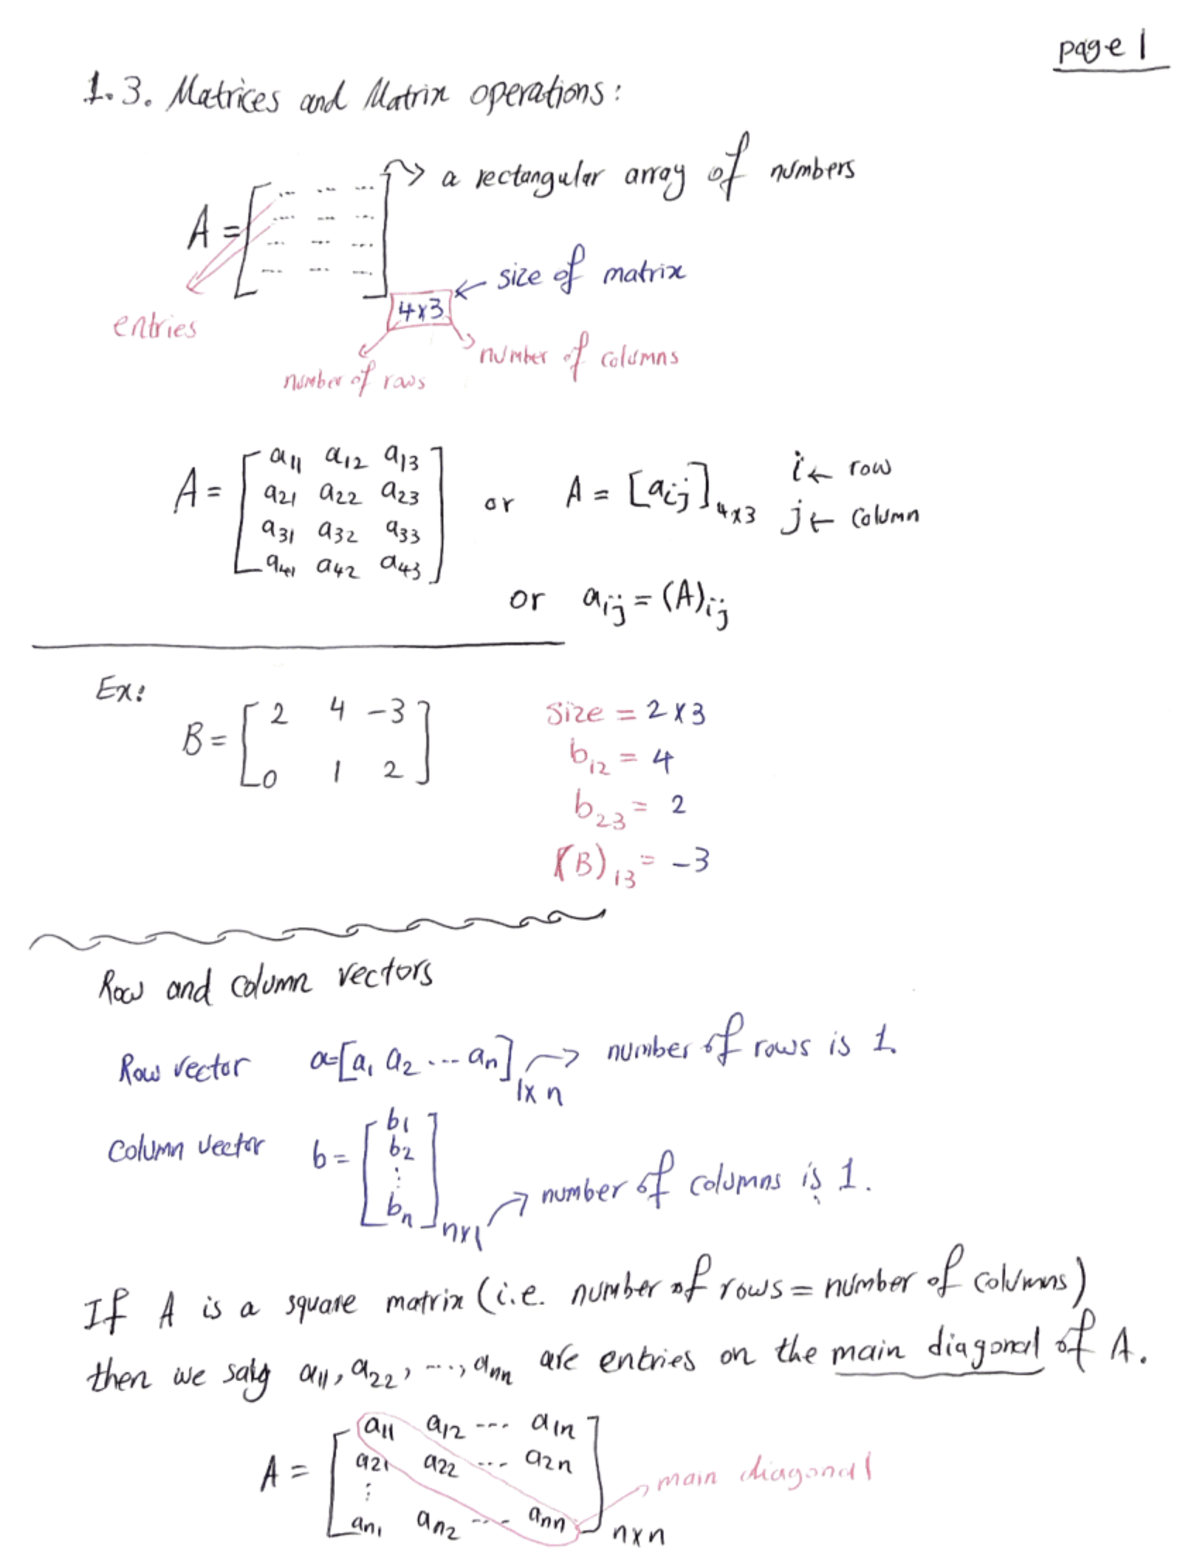 page 1
1.3. Matrices and Matrix operations:
a rectangular array of numbers
A = [ ... ... ... ; ... ... ... ; ... ... ... ; ... ... ... ]
size of matrix
4x3
entries
number of columns
number of rows
A = [ a11 a12 a13
a21 a22 a23
a31 a32 a33
a41 a42 a43 ]
or A = [aij]4x3
i ← row
j ← column
or aij = (A)ij
Ex:
B = [ 2 4 -3
0 1 2 ]
Size = 2 x 3
b12 = 4
b23 = 2
(B)13 = -3
Row and column vectors
Row vector a=[a1 a2 ... an]1x n → number of rows is 1.
Column vector b = [ b1
b2
⋮
bn ]nx1 → number of columns is 1.
If A is a square matrix (i.e. number of rows = number of columns)
then we say a11, a22, ..., ann are entries on the main diagonal of A.
A = [ a11 a12 ... a1n
a21 a22 ... a2n
⋮
an1 an2 ... ann ]nxn
main diagonal